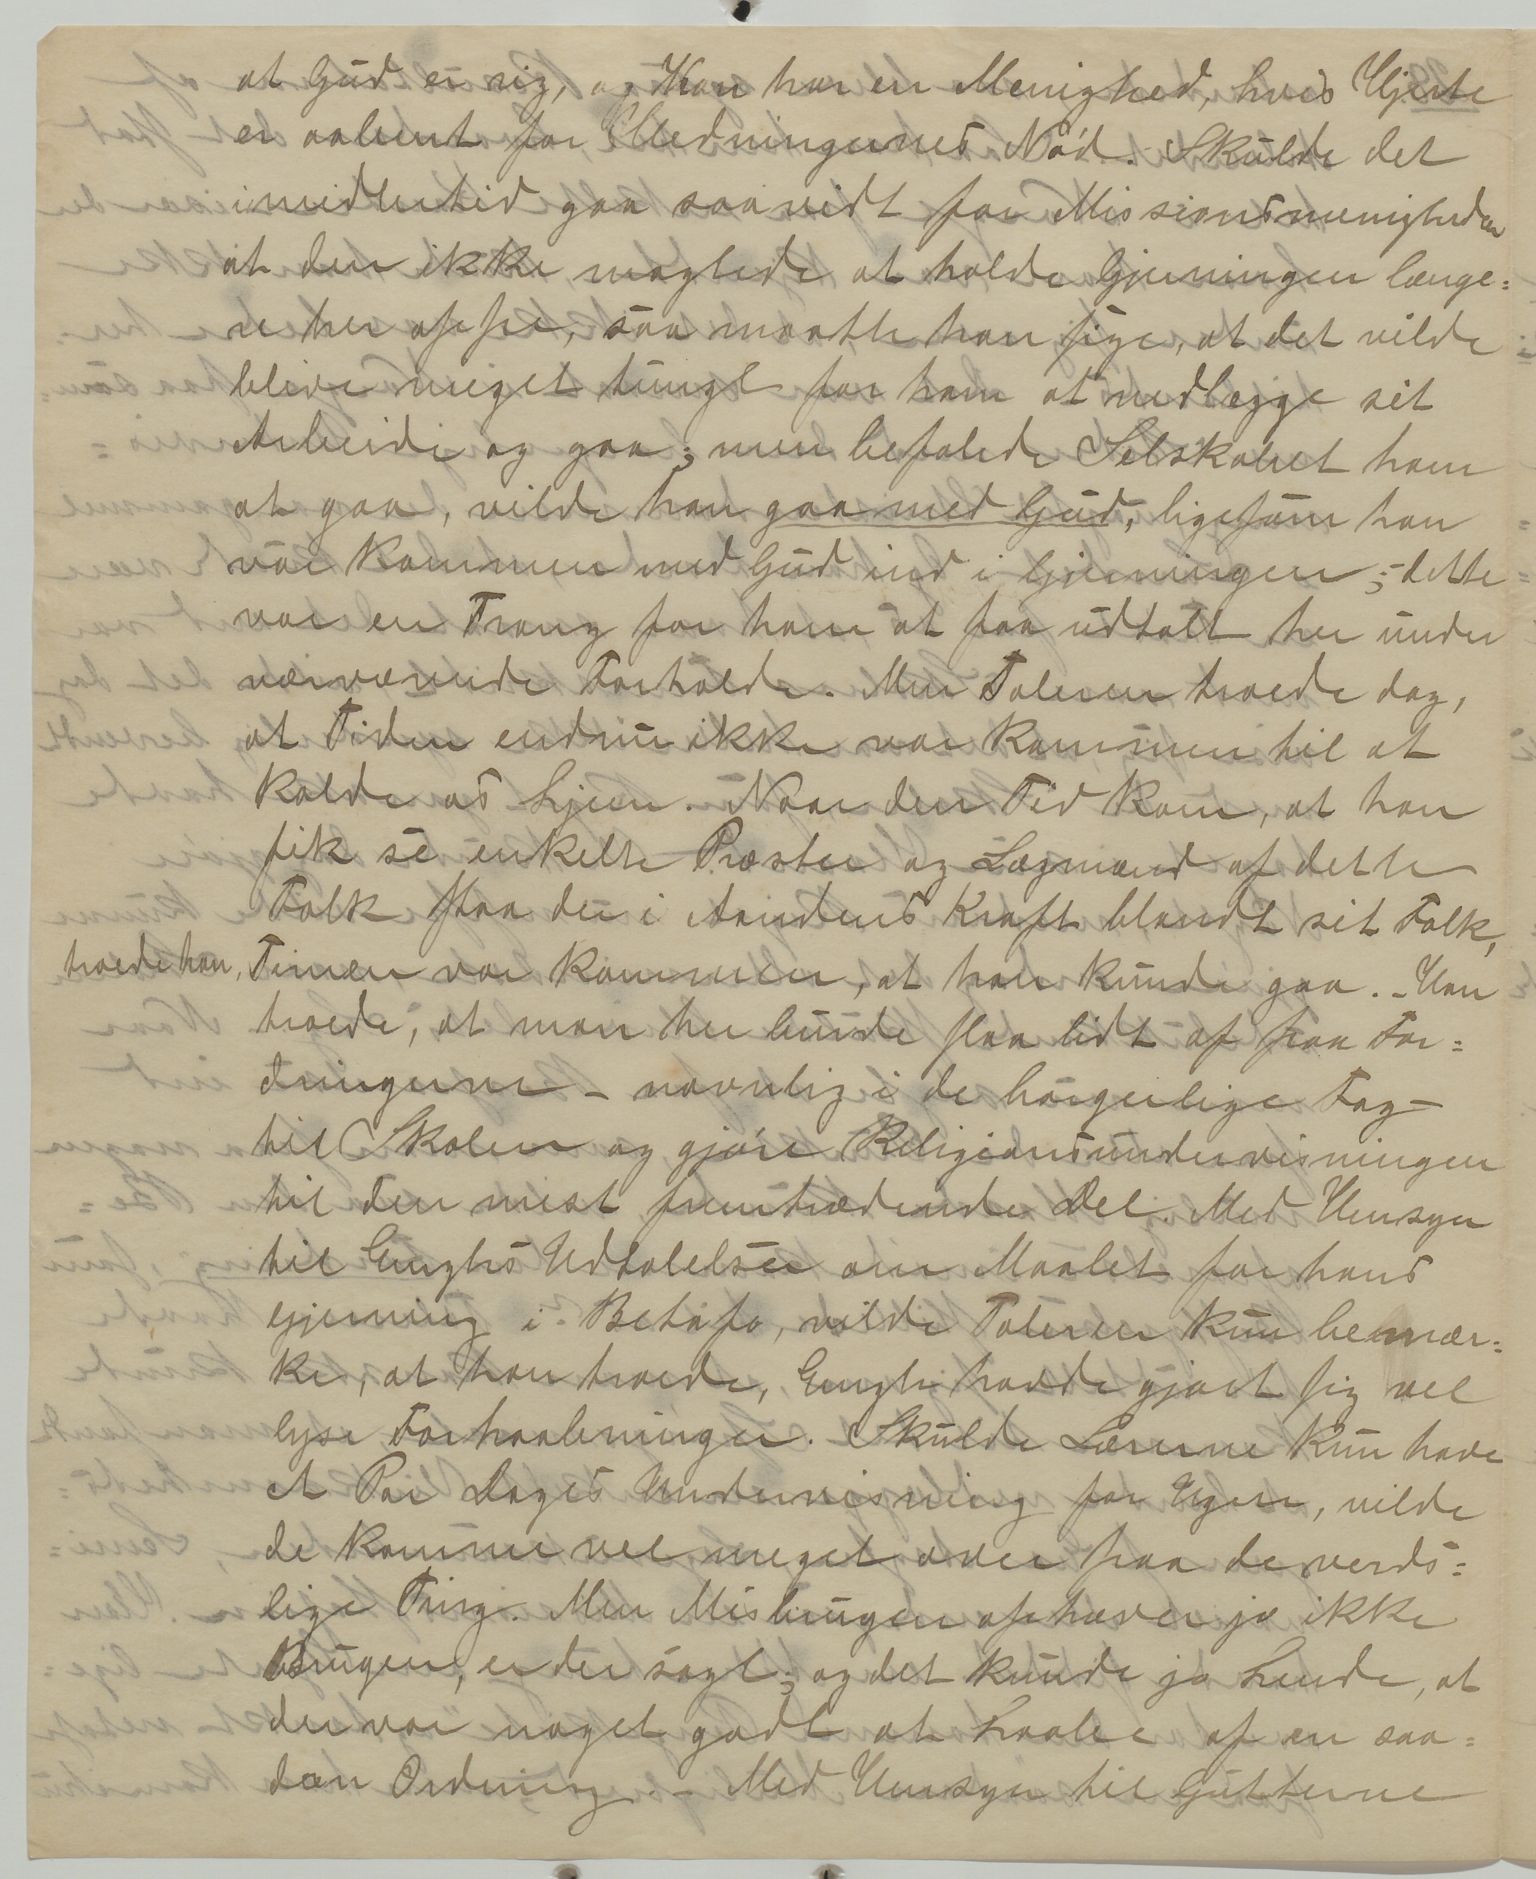 at Gud er rig, og Han har en Menighed, hvis Hjerte
er aabent for Hedningernes Nød. Skulde det
imidlertid gaa saavidt for Missionsmenigheden
at den ikke magtede at holde Gjerningen længe=
re her oppe, saa maatte han sige, at det vilde
blive meget tungt for ham at nedlægge sit
Arbeide og gaa; men befalede Selskabet ham
at gaa, vilde han gaa med Gud, ligesom han
var kommen med Gud ind i Gjerningen; - dette
var en Trang for ham at faa udtalt her under
nærværende Forholde. Men Taleren troede dog,
at Tiden endnu ikke var kommen til at
kalde os hjem. Naar den Tid kom, at han
fik se enkelte Præster og Lægmænd af dette
Folk staa der i Aandens Kraft blandt sit Folk,
troede han, Timen var kommen, at han kunde gaa. - Han
troede, at man her burde slaa lidt af paa For=
dringerne - navnlig i de borgerlige Fag -
til Skolen og gjøre Religionsundervisningen
til den mest fremtrædende Del. Med Hensyn
til Enghs Udtalelser om Maalet for hans
Gjerning i Betafo, vilde Taleren kun bemær=
ke, at han troede, Engh havde gjort sig vel
lyse Forhaabninger. Skulde Lærerne kun have
et Par Dages Undervisning for Ugen, vilde
de komme vel meget over paa de verds=
lige Ting. Men Misbrugen ophæver jo ikke
Brugen, er der sagt; og det kunde jo hende, at
der var noget godt at haabe af en saa=
dan Ordning. - Med Hensyn til Gutterne